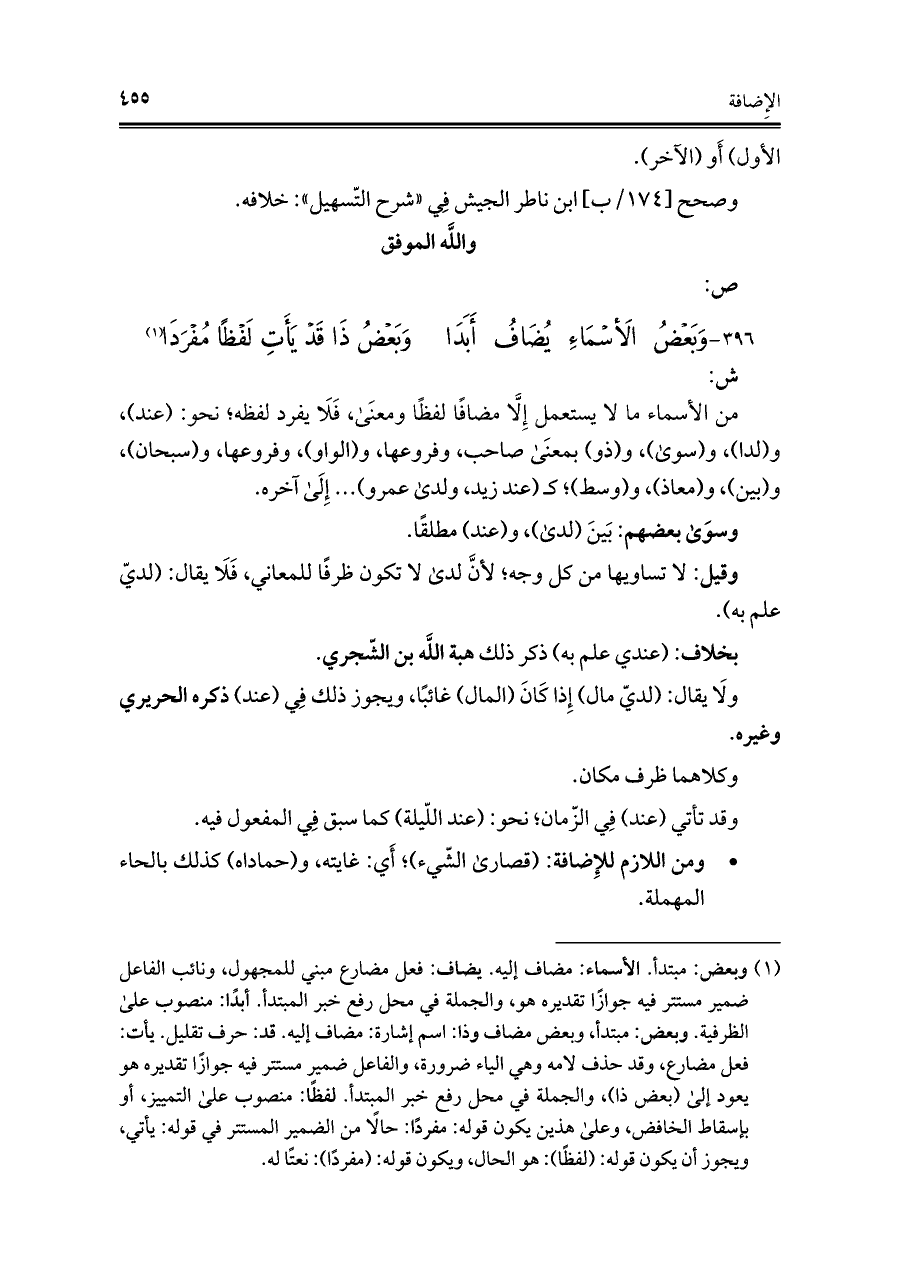 الإِضافة ٤٥٥
الأول) أَو (الآخر).
وصحح [١٧٤/ ب] ابن ناطر الجيش فِي «شرح التّسهيل»: خلافه.
واللَّه الموفق
ص:
٣٩٦-وَبَعْضُ الَأسْمَاءِ يُضَافُ أَبَدَا وَبَعْضُ ذَا قَدْ يَأَتِ لَفْظًا مُفْرَدَا(١)
ش:
من الأسماء ما لا يستعمل إِلَّا مضافًا لفظًا ومعنَى، فَلَا يفرد لفظه؛ نحو: (عند)،
و(لدا)، و(سوىٰ)، و(ذو) بمعنَىٰ صاحب، وفروعها، و(الواو)، وفروعها، و(سبحان)،
و(بين)، و(معاذ)، و(وسط)؛ كـ (عند زيد، ولدىٰ عمرو)... إِلَىٰ آخره.
وسوَىٰ بعضهم: بَينَ (لدىٰ)، و(عند) مطلقًا.
وقيل: لا تساويها من كل وجه؛ لأنَّ لدىٰ لا تكون ظرفًا للمعاني، فَلَا يقال: (لديّ
علم به).
بخلاف: (عندي علم به) ذكر ذلك هبة اللَّه بن الشّجري.
ولَا يقال: (لديّ مال) إِذا كَانَ (المال) غائبًا، ويجوز ذلك فِي (عند) ذكره الحريري
وغيره.
وكلاهما ظرف مكان.
وقد تأتي (عند) فِي الزّمان؛ نحو: (عند اللّيلة) كما سبق فِي المفعول فيه.
• ومن اللازم للإِضافة: (قصارىٰ الشّيء)؛ أَي: غايته، و(حماداه) كذلك بالحاء
المهملة.
(١) وبعض: مبتدأ. الأسماء: مضاف إليه. يضاف: فعل مضارع مبني للمجهول، ونائب الفاعل
ضمير مستتر فيه جوازًا تقديره هو، والجملة في محل رفع خبر المبتدأ. أبدًا: منصوب علىٰ
الظرفية. وبعض: مبتدأ، وبعض مضاف وذا: اسم إشارة: مضاف إليه. قد: حرف تقليل. يأت:
فعل مضارع، وقد حذف لامه وهي الياء ضرورة، والفاعل ضمير مستتر فيه جوازًا تقديره هو
يعود إلىٰ (بعض ذا)، والجملة في محل رفع خبر المبتدأ. لفظًا: منصوب علىٰ التمييز، أو
بإسقاط الخافض، وعلىٰ هذين يكون قوله: مفردًا: حالًا من الضمير المستتر في قوله: يأتي،
ويجوز أن يكون قوله: (لفظًا): هو الحال، ويكون قوله: (مفردًا): نعتًا له.